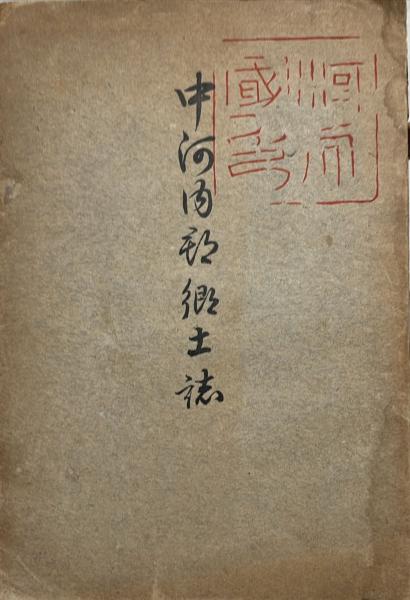 中河内郡郷土誌
河内國印